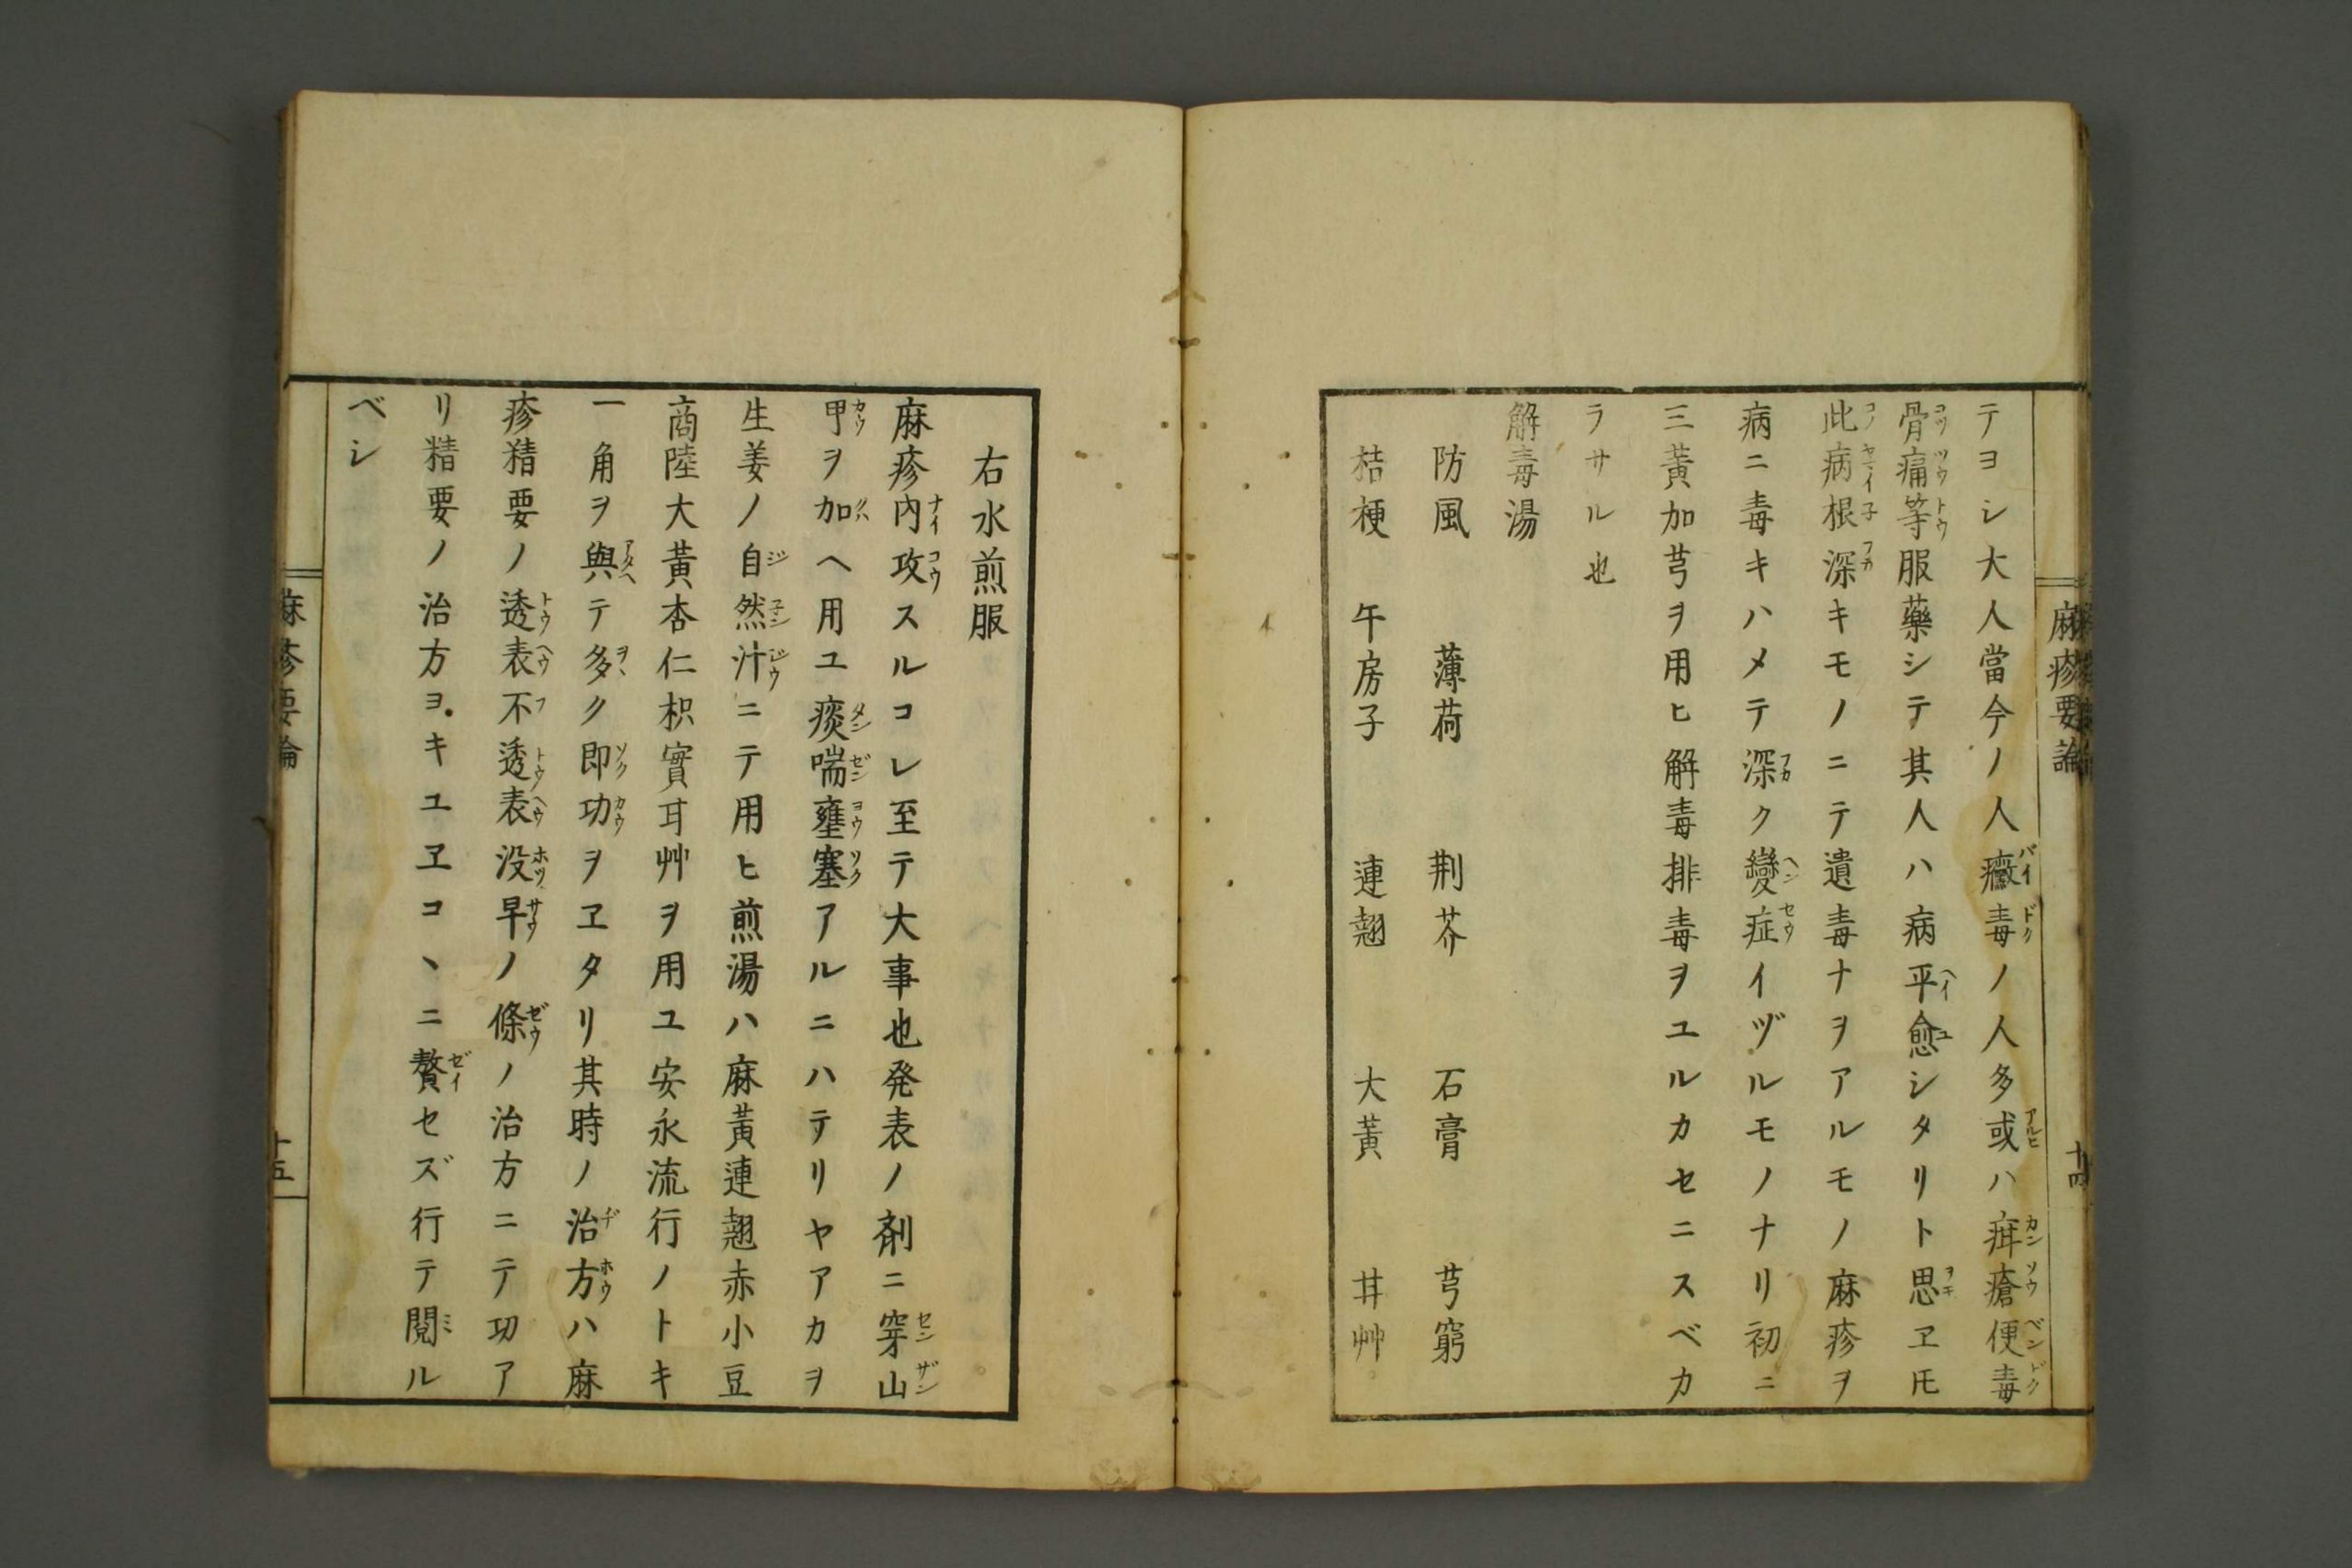 麻疹要論
十四
テヨシ大人當今ノ人癥毒ノ人多或ハ疳瘡便毒
骨痛等服藥シテ其人ハ病平愈シタリト思ヱ𪜈
此病根深キモノニテ遺毒ナヲアルモノ麻疹ヲ
病ニ毒キハメテ深ク變症イヅルモノナリ初ニ
三黃加芎ヲ用ヒ解毒排毒ヲユルカセニスベカ
ラサル也
解毒湯
防風 薄荷 荆芥 石膏 芎窮
桔梗 午房子 連翹 大黃 甘艸
右水煎服
麻疹内攻スルコレ至テ大事也発表ノ剤ニ穿山
甲ヲ加ヘ用ユ痰喘壅塞アルニハテリヤアカヲ
生姜ノ自然汁ニテ用ヒ煎湯ハ麻黃連翹赤小豆
商陸大黃杏仁枳實甘艸ヲ用ユ安永流行ノトキ
一角ヲ與テ多ク即功ヲヱタリ其時ノ治方ハ麻
疹精要ノ透表不透表没早ノ條ノ治方ニテ功ア
リ精要ノ治方ヨキユヱコヽニ贅セズ行テ閲ル
ベシ
麻疹要論
十五